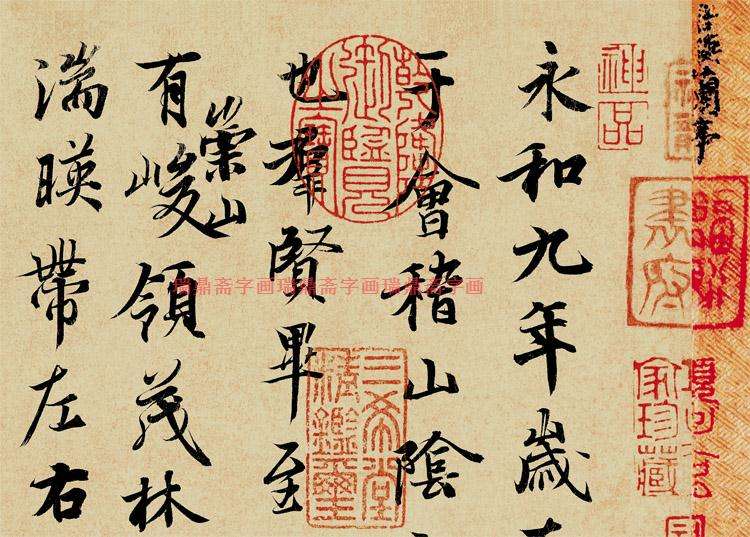 蘭亭
神品
書府
家珍藏
永和九年歲
于會稽山陰
乾隆御覽之寶
三希堂精鑑璽
也羣賢畢至
有崇山峻領茂林
湍暎帶左右
瑞鼎斋字画瑞鼎斋字画瑞鼎斋字画